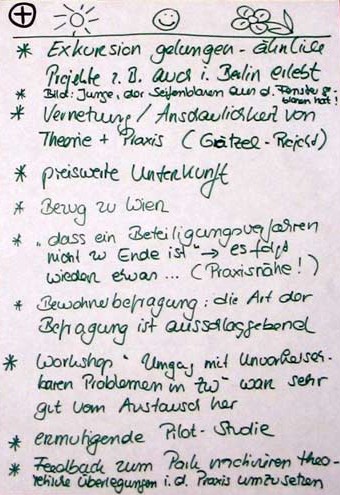 * Exkursion gelungen - ähnliche
Projekte z.B. auch i. Berlin erlebt
* Bild: Junge, der Seifenblasen aus d. Fenster ge-
blasen hat!
* Vernetzung / Anschaulichkeit von
Theorie + Praxis (Grätzel-Projekt)
* preiswerte Unterkunft
* Bezug zu Wien
* "dass ein Beteiligungsverfahren
nicht zu Ende ist" → es folgt
wieder etwas ... (Praxisnähe!)
* Bewohnerbefragung: die Art der
Befragung ist ausschlaggebend
* Workshop "Umgang mit unvorherseh-
baren Problemen in ZW" war sehr
gut vom Austausch her
* ermutigende Pilot-Studie
* Feedback zum Park theo-
retische Überlegungen i.d. Praxis umzusetzen